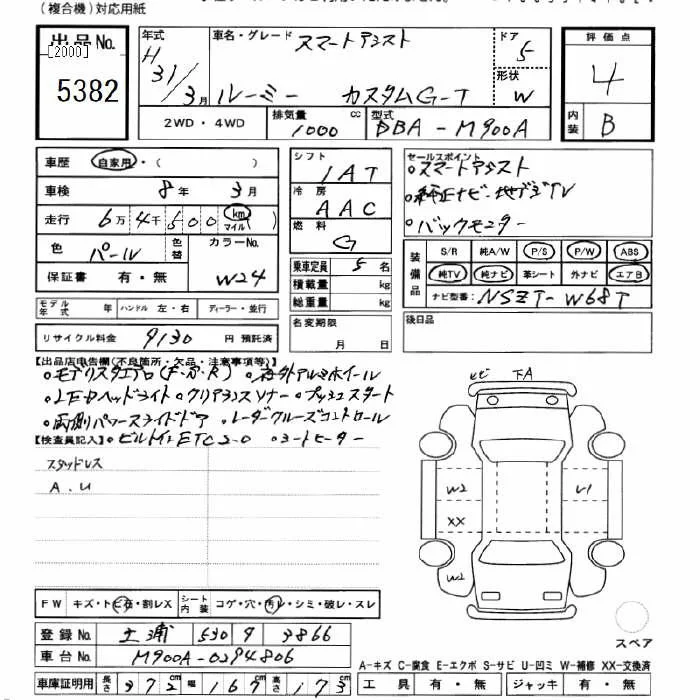 (複合機)対応用紙
出品No.
[2000]
5382
H 31年 3月
車名・グレード スマートアシスト
ルーミー カスタムG-T
ドア 5
形状 W
2WD・4WD 排気量 1000 cc 型式 DBA-M900A
評価点
4
内装 B
車歴 自家用・( )
車検 8年 3月
走行 6万4千500 km マイル
色 パール 色替 カラーNo. W24
保証書 有・無
シフト IAT
冷房 AAC
燃料 G
乗車定員 5名
積載量 kg
総重量 kg
セールスポイント
・スマートアシスト
・純正ナビ・地デジTV
・バックモニター
装備品 S/R 純A/W P/S P/W ABS
純TV 純ナビ 革シート 外ナビ エアB
ナビ型番: NSZT-W68T
モデル年式 年 ハンドル 左・右 ディーラー・並行
リサイクル料金 9130 円 預託済
名変期限 月 日
後日品
【出品店申告欄(不良箇所・欠品・注意事項等)】
・モデリスタエアロ(F・S・R) ・社外アルミホイール
・LEDヘッドライト・クリアランスソナー・プッシュスタート
・両側パワースライドドア ・レーダークルーズコントロール
【検査員記入】・ビルトインETC2.0 ・シートヒーター
スタッドレス
A.U
トビ 下A
W2
XX
W2
U1
スペア
FW キズ・トビ石・割レX シート内装 コゲ・穴・汚レ・シミ・破レ・スレ
登録No. 土浦 530 9 3866
車台No. M900A-0294806
車庫証明用 長さ 372 cm 幅 167 cm 高さ 173 cm
A-キズ C-腐食 E-エクボ S-サビ U-凹ミ W-補修 XX-交換済
工具 有・無 ジャッキ 有・無